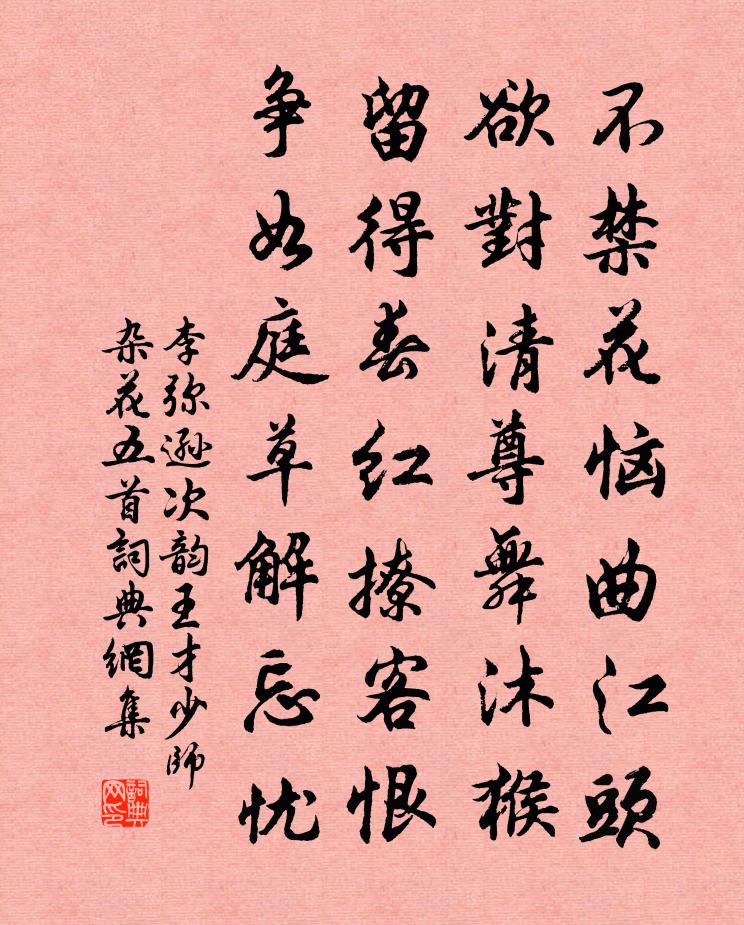 不禁花恼曲江頭
欲對清尊舞沐猴
留得春红撩客恨
争如庭草解忘忧
李弥逊次韵王才少師
杂花五首詞典網集
詞典网印